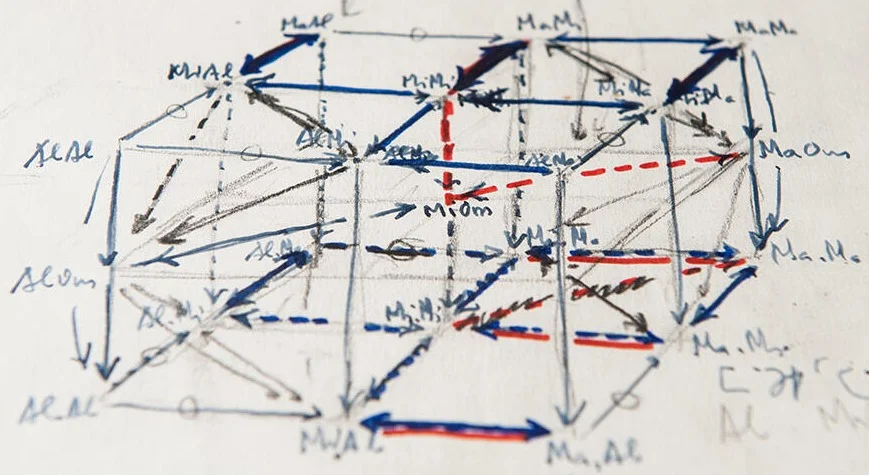 MaAl
MaMi
MaMa
MiAl
MiMi
MiMa
AlAl
AlMi
AlMa
MaOm
MiOm
AlOm
Ma.Ma
Al.Mi
Mi.Mi
Ma.Mi
Al.Al
Mi.Al
Ma.Al
Al